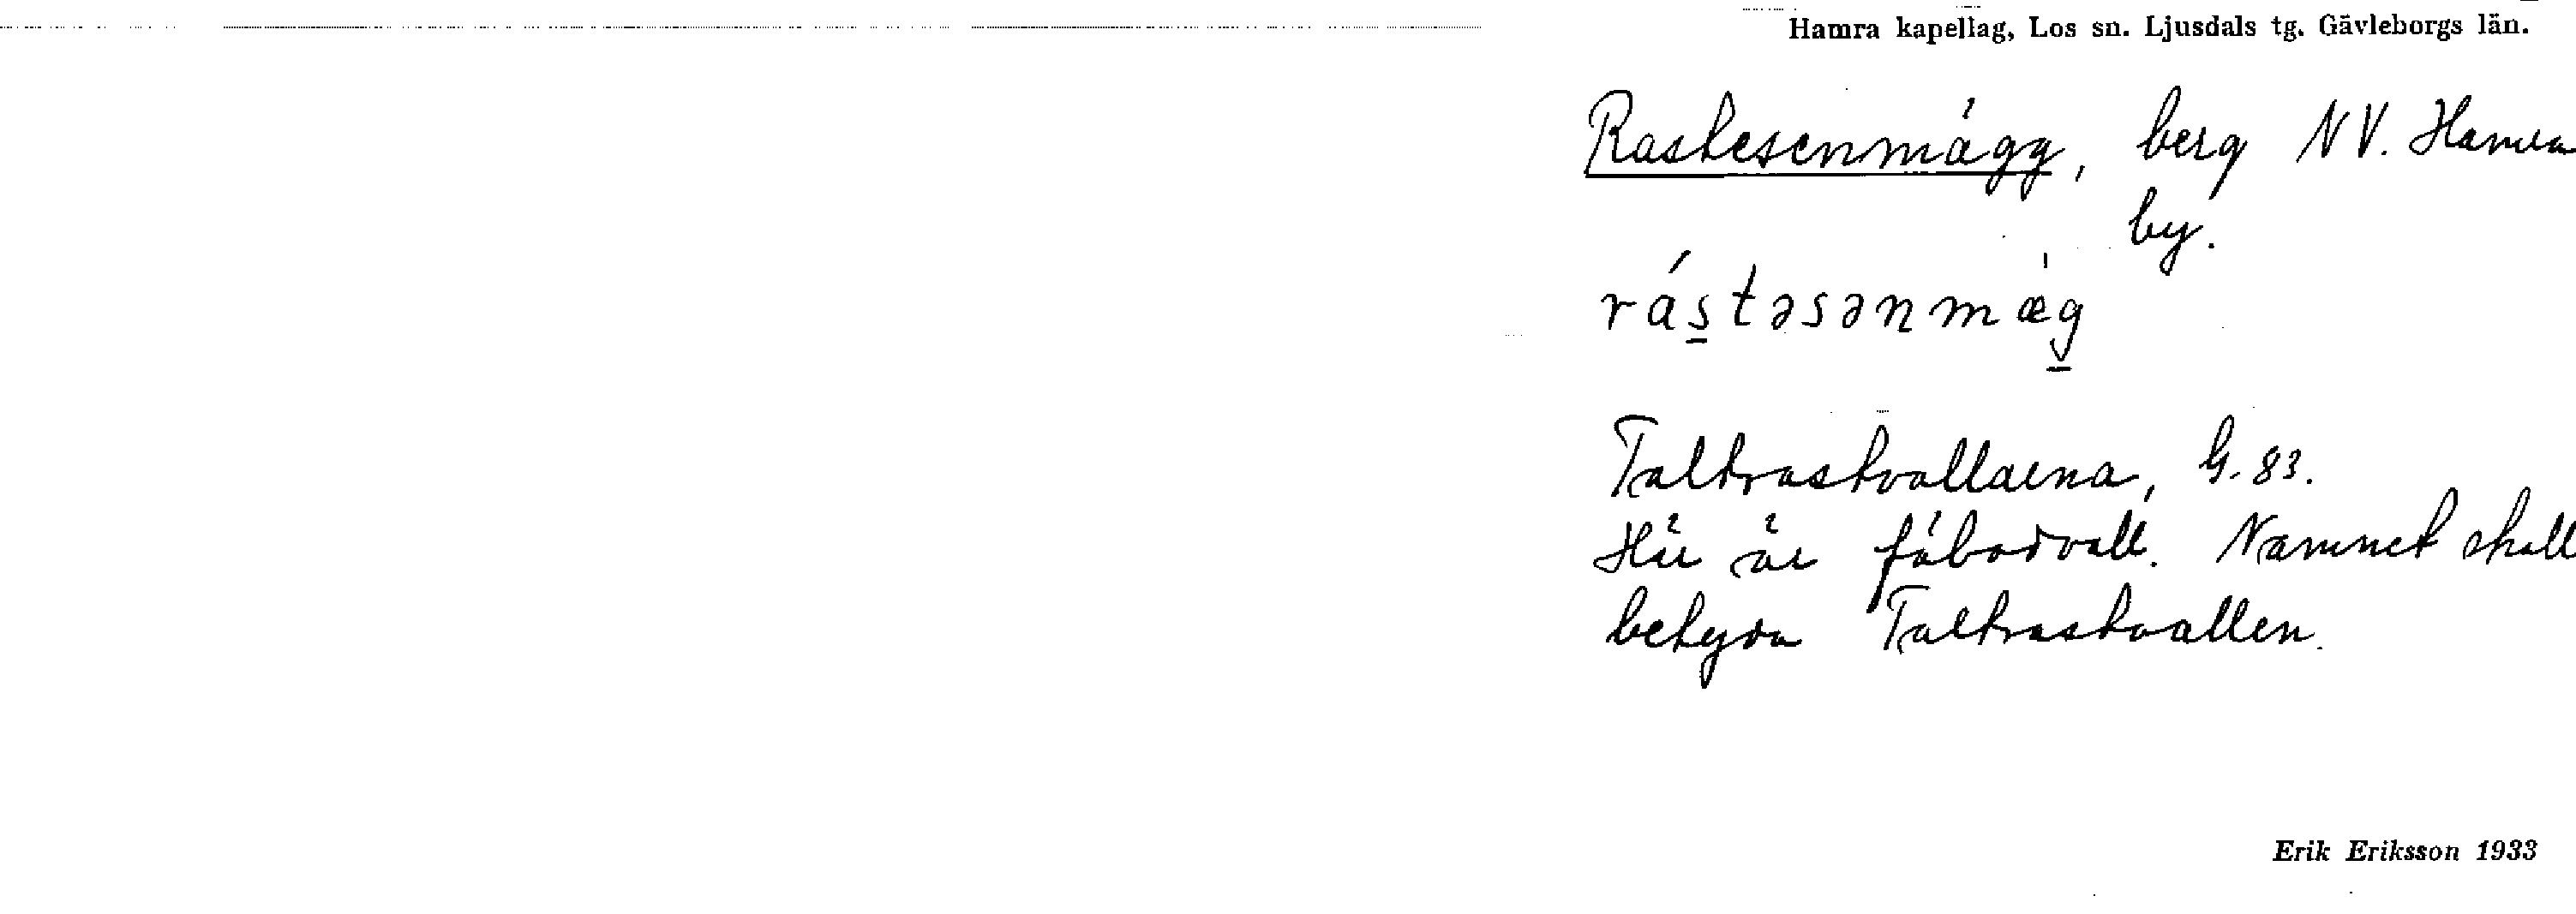 Hamra kapellag, Los sn. Ljusdals tg. Gävleborgs län.
Rastesenmägg, berg NV. Hamra
by.
rástəsənmæ̀g
Taltrastvallarna, G. 83.
Här är fäbodvall. Namnet skall
betyda Taltrastvallen.
Erik Eriksson 1933